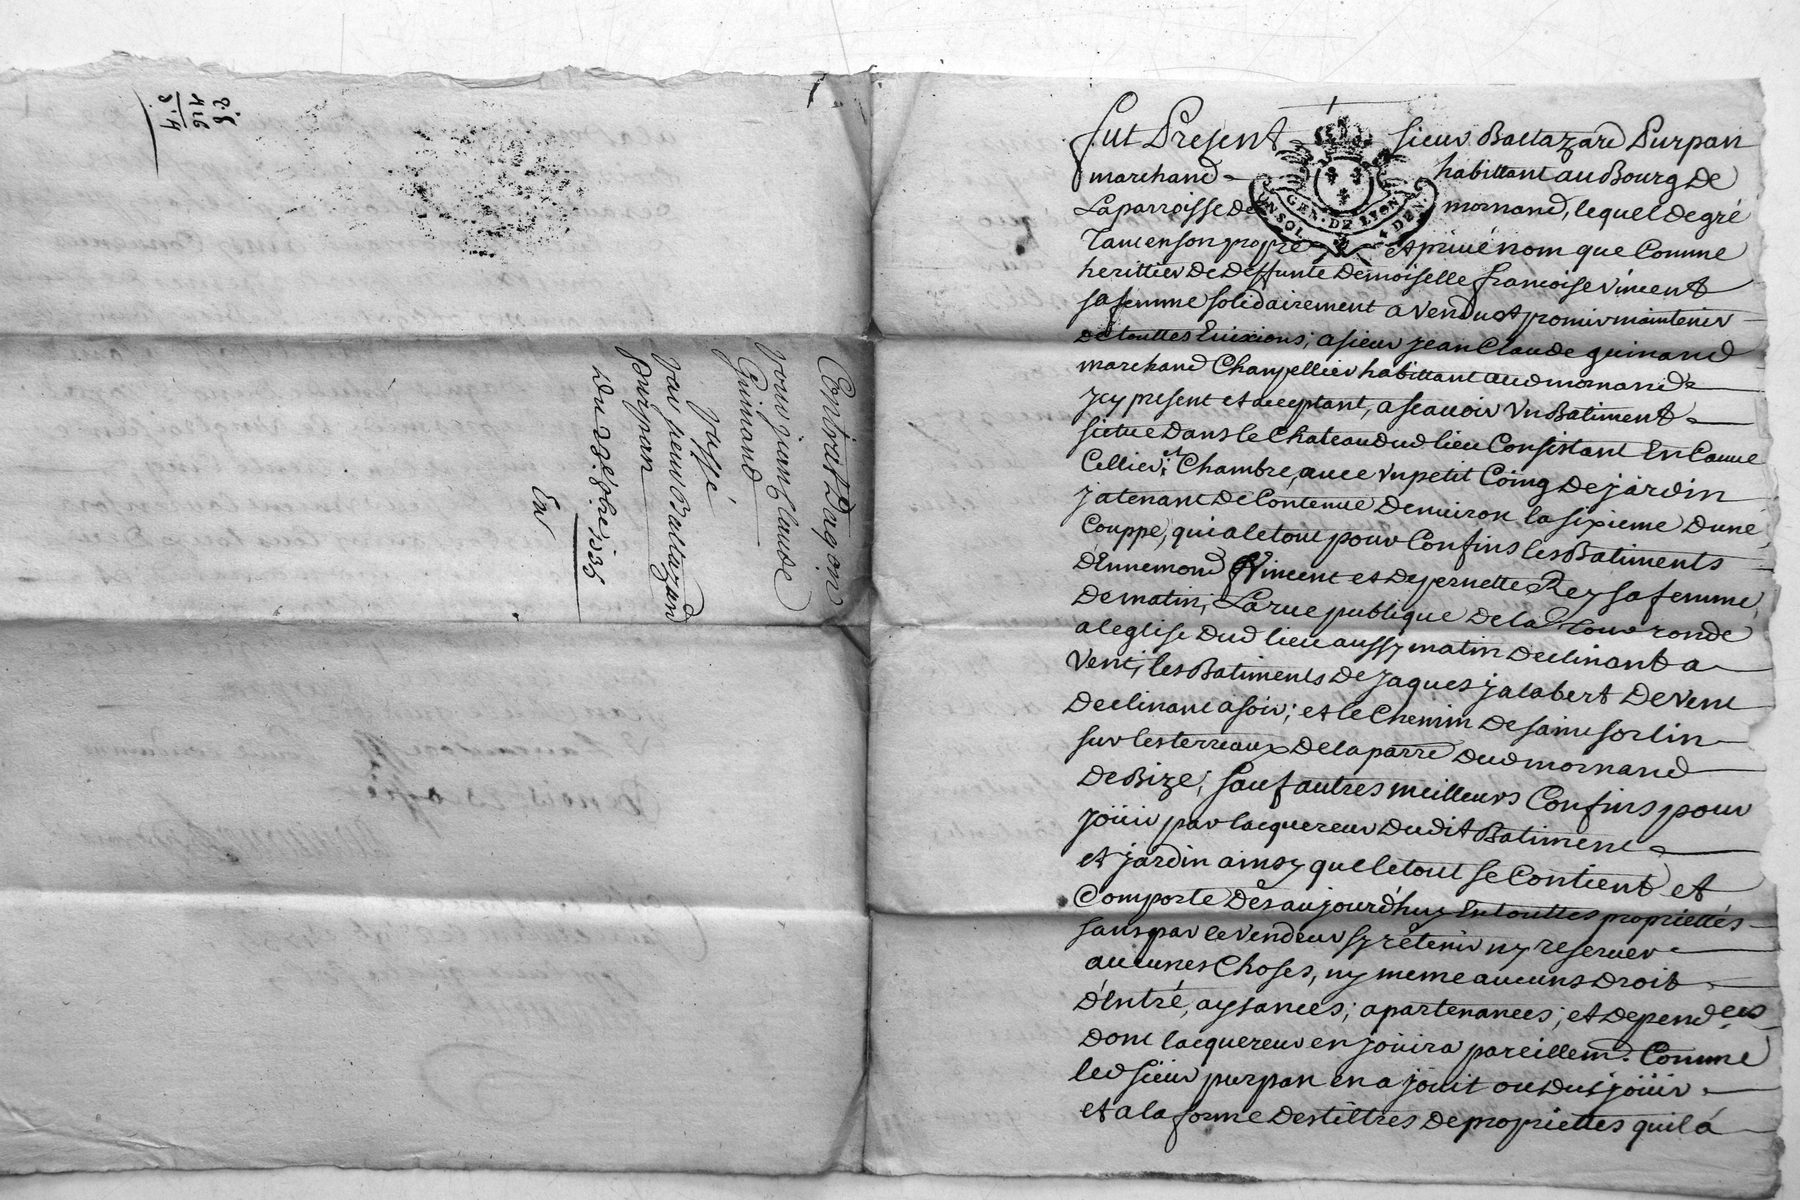 Contrat Dagon
pour jean Claude
Guinand
passé
par sieur Baltazard
purpan
Du 7bre 1736
fut Present sieur Baltazard Purpan
marchand habittant au Bourg De
La parroisse De mornand, lequel De gré
Tant en son propre et privé nom que Comme
herittier De Deffunte Demoiselle francoise vincent
sa femme solidairement a vendu et promis maintenir
De touttes Evixions; a sieur jean Claude guinand
marchand Chapellier habittant aud mornand
jcy present et acceptant, a scavoir Un Batiment
scitue Dans le Chateau dud lieu Consistant En Cauve
Cellier, et Chambre, avec un petit Coing De jardin
jatenant De Contenue Denviron la sixieme Dune
Couppe, qui a le tout pour Confins les Batiments
D'Ennemond Vincent et De pernette Rey sa femme
De matin; La rue publique De la Tour ronde
a leglise Dud lieu aussy matin Declinant a
Vent; les Batiments De jaques jalabert De vent
Declinant a soir; et le Chemin De saint sorlin
sur les terreaux De la parre Dud mornand
De Bize; sauf autres meilleurs Confins, pour
joüir par lacquereur Dudit Batiment
et jardin ainsy que le tout se Contient et
Comporte Dès aujourd'huy En touttes propriettés
sans par le vendeur sy rétenir ny reserver
aucunes Choses, ny meme aucuns Droit
d'Entré, aysances; apartenances; et Dependces
Dont lacquereur en joüira pareillem. Comme
led sieur purpan en a joüit ou Du joüir
et a la forme Des tiltres De proprietties quil à
GEN. DE LYON